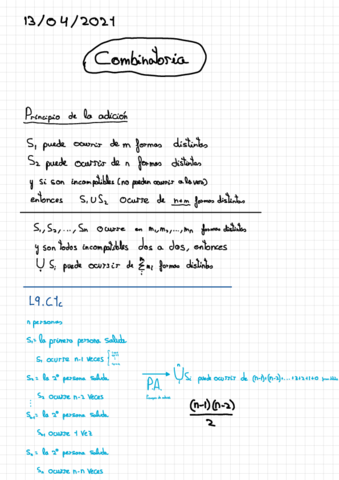 13/04/2021
Combinatoria
Principio de la adición
S₁ puede ocurrir de m formas distintas
S₂ puede ocurrir de n formas distintas
y si son incompatibles (no pueden ocurrir a la vez)
entonces S₁∪S₂ ocurre de n+m formas distintas
S₁, S₂, ..., Sn ocurre en m₁, m₂, ..., mn formas distintas
y son todos incompatibles dos a dos, entonces
∪ Si puede ocurrir de Σ mi formas distintas
L9.C1c
n personas
S₁ = la primera persona saluda
S₁ ocurre n-1 veces
S₂ = la 2ª persona saluda
P.A.
∪ Si puede ocurrir de (n-1)+(n-2)+...+3+2+1+0
S₂ ocurre n-2 veces
(n-1)(n-2)
2
⋮
persona saluda
ocurre 1 vez
persona saluda
ocurre n-n veces